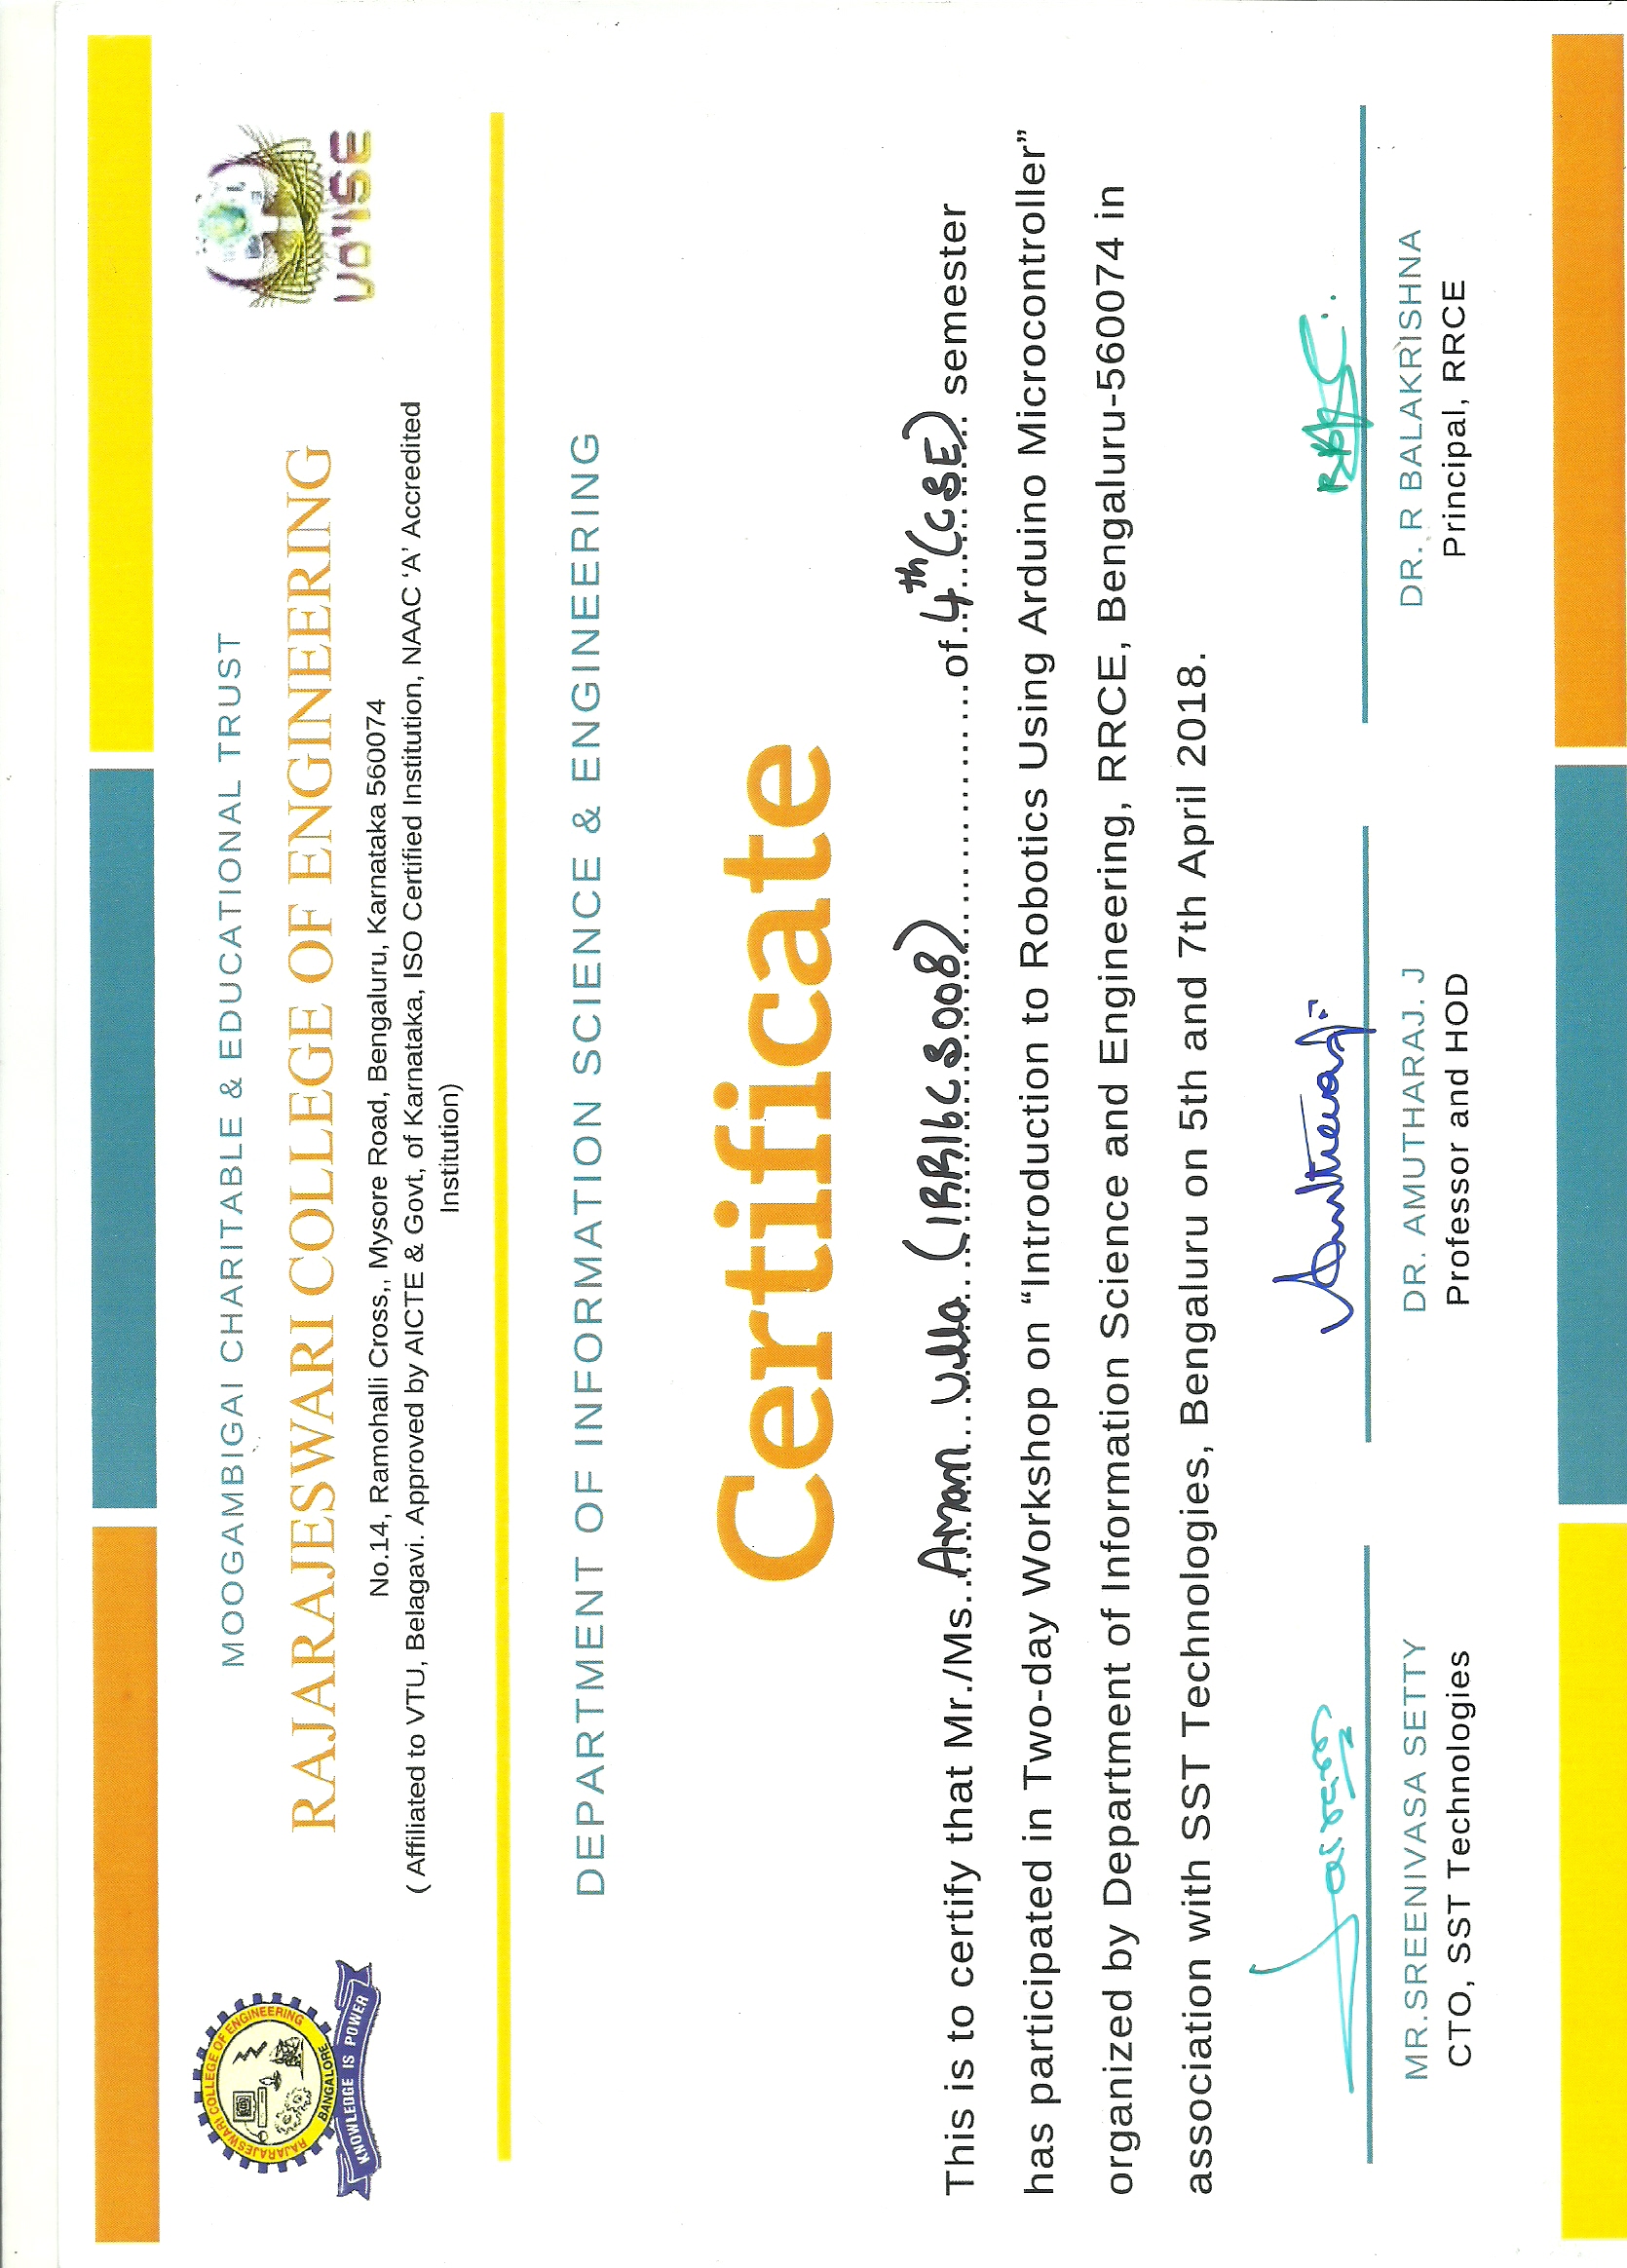 MOOGAMBIGAI CHARITABLE & EDUCATIONAL TRUST
RAJARAJESWARI COLLEGE OF ENGINEERING
RAJARAJESWARI COLLEGE OF ENGINEERING
BANGALORE
KNOWLEDGE IS POWER
No.14, Ramohalli Cross,, Mysore Road, Bengaluru, Karnataka 560074
( Affiliated to VTU, Belagavi. Approved by AICTE & Govt, of Karnataka, ISO Certified Institution, NAAC ‘A’ Accredited
Institution)
DEPARTMENT OF INFORMATION SCIENCE & ENGINEERING
Certificate
This is to certify that Mr./Ms. Aman Ulla (1RR16CS008) of 4th (CSE) semester
has participated in Two-day Workshop on “Introduction to Robotics Using Arduino Microcontroller”
organized by Department of Information Science and Engineering, RRCE, Bengaluru-560074 in
association with SST Technologies, Bengaluru on 5th and 7th April 2018.
MR.SREENIVASA SETTY
CTO, SST Technologies
DR. AMUTHARAJ. J
Professor and HOD
DR. R BALAKRISHNA
Principal, RRCE